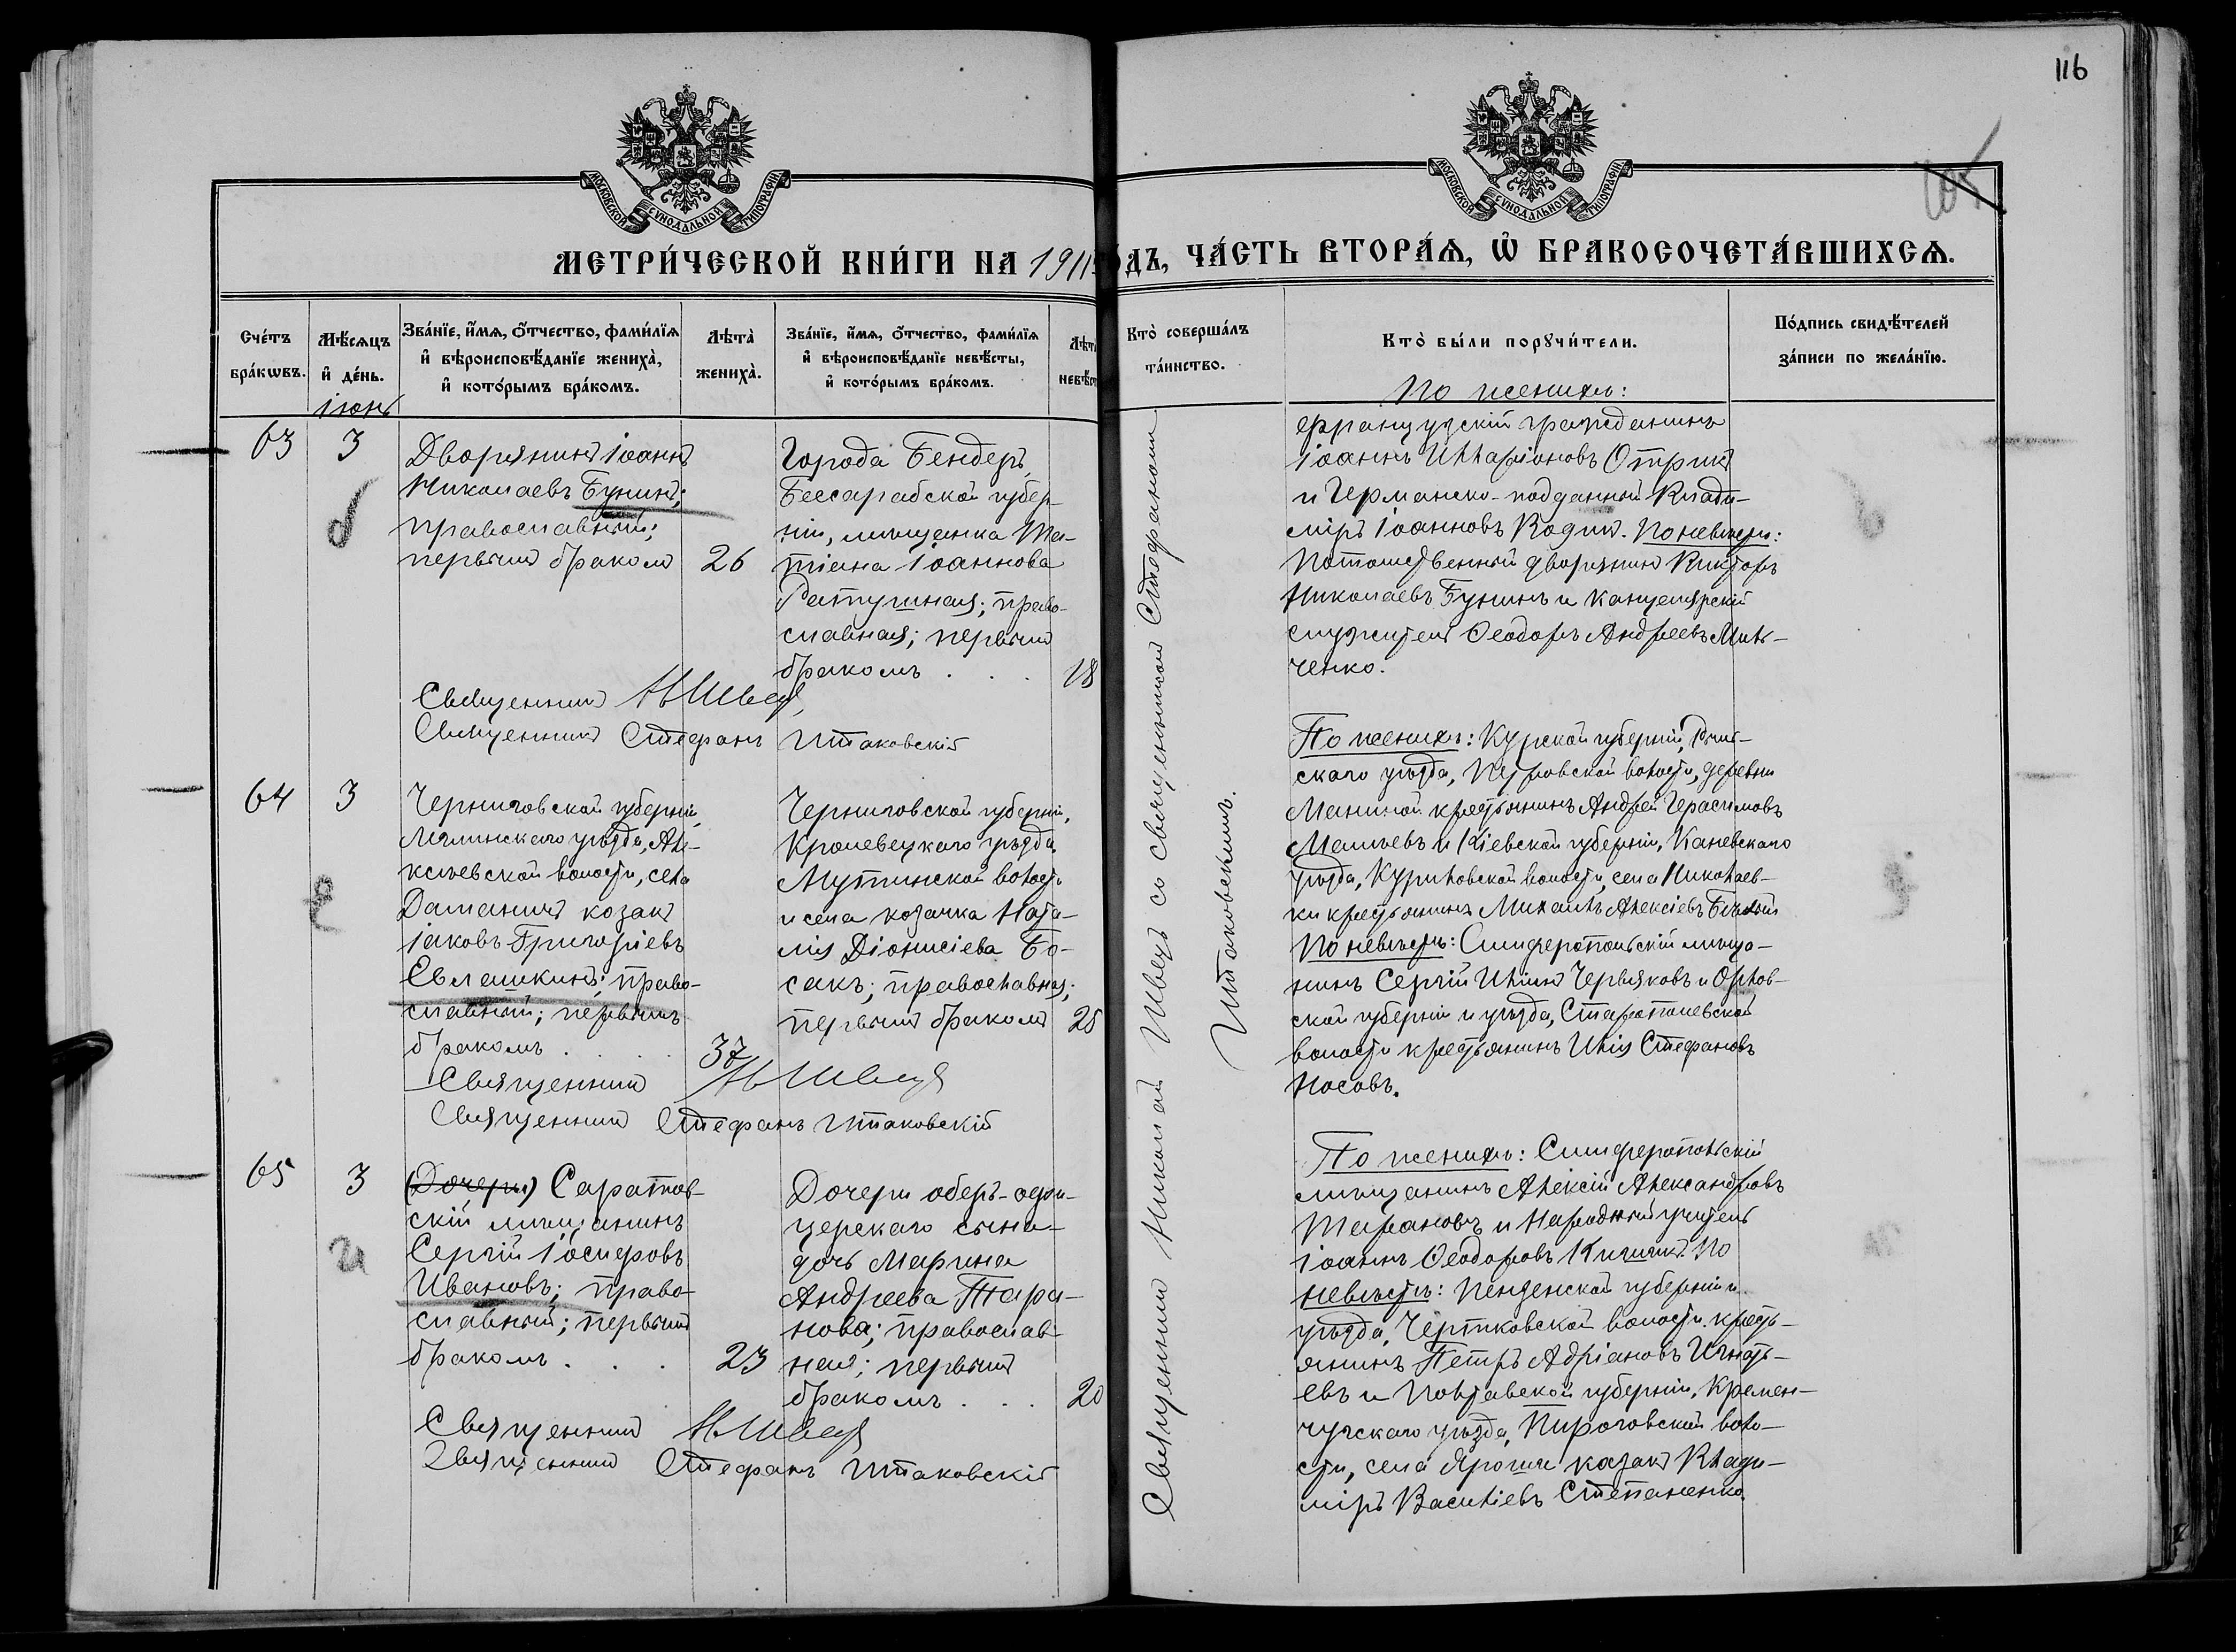 116
МОСКОВСКОЙ СѴНОДАЛЬНОЙ ТИПОГРАФІИ
МОСКОВСКОЙ СѴНОДАЛЬНОЙ ТИПОГРАФІИ
МЕТРИ́ЧЕСКОЙ КНИ́ГИ НА 1911
ДЪ, ЧА́СТЬ ВТОРА́Ѧ, Ѽ БРАКОСОЧЕТА́ВШИХСѦ.
Сче́тъ
бра́кѡвъ.
Мѣ́сѧцъ
и҆ де́нь.
Зва́нїе, и҆́мѧ, ѻ҆́тчество, фами́лїѧ
и҆ вѣроисповѣ́данїе жениха̀,
и҆ кото́рымъ бра́комъ.
Лѣта̀
жениха̀.
Зва́нїе, и҆́мѧ, ѻ҆́тчество, фами́лїѧ
и҆ вѣроисповѣ́данїе невѣ́сты,
и҆ кото́рымъ бра́комъ.
Лѣта
невѣст
Кто̀ соверша́лъ
та́инство.
Кто̀ бы́ли порꙋчи́тели.
По́дпись свидѣ́телей
за́писи по жела́нїю.
іюнь
63
3
Дворянинъ Іоаннъ
Николаевъ Бунинъ;
православный;
первымъ бракомъ
26
Города Бендеръ
Бессарабской губер-
ніи, мѣщанка Та-
тіана Іоаннова
Ратушная; право-
славная; первымъ
бракомъ . . .
18
Священникъ Н Швецъ
Священникъ Стефанъ Итаковскій
По женихѣ:
французскій гражданинъ
Іоаннъ Илларіоновъ Отрикъ
и Германско-подданный Влади-
міръ Іоанновъ Водикъ. По невѣстѣ:
Потомственный дворянинъ Викторъ
Николаевъ Бунинъ и канцелярскій
служитель Ѳеодоръ Андреевъ Миль-
ченко.
64
3
Черниговской губерніи,
Мглинскаго уѣзда, Але-
ксѣевской волости, села
Даманичъ козакъ
Іаковъ Григоріевъ
Евлашкинъ; право-
славный; первымъ
бракомъ . . . .
37
Черниговской губерніи,
Кролевецкаго уѣзда,
Мутинской волости
и села козачка Ната-
лія Діонисіева Бо-
сакъ; православная;
первымъ бракомъ
25
Священникъ Н Швецъ
Священникъ Стефанъ Итаковскій
По женихѣ: Курской губерніи, Рыль-
скаго уѣзда, волости, деревни
Маниной крестьянинъ Андрей Герасимовъ
и Кіевской губерніи, Каневскаго
уѣзда, Куриловской волости, села Николаев-
ки крестьянинъ Михаилъ Алексіевъ Бѣлый
По невѣстѣ: Симферопольскій мѣща-
нинъ Сергій Ильинъ Червяковъ и Орлов-
ской губерніи и уѣзда,
волости крестьянинъ Илія Стефановъ
Носовъ.
65
3
(Дочери) Саратов-
скій мѣщанинъ
Сергій Іосифовъ
Ивановъ; право-
славный; первымъ
бракомъ . . .
23
Дочери оберъ-офи-
церскаго сына
дочь Марина
Андреева Тара-
нова; православ-
ная; первымъ
бракомъ . . .
20
Священникъ Н Швецъ
Священникъ Стефанъ Итаковскій
По женихѣ: Симферопольскій
мѣщанинъ Алексій Александровъ
Тарановъ и Народный учитель
Іоаннъ Ѳеодоровъ По
невѣстѣ: Пензенской губерніи и
уѣзда, Чертковской волости, кресть-
янинъ Петръ Адріановъ Игнать-
евъ и Полтавской губерніи, Кремен-
чугскаго уѣзда, Пироговской воло-
сти, села казакъ Влади-
міръ Василіевъ Степаненко.
Священникъ Николай Швецъ со священникомъ Стефаномъ
Итаковскимъ.